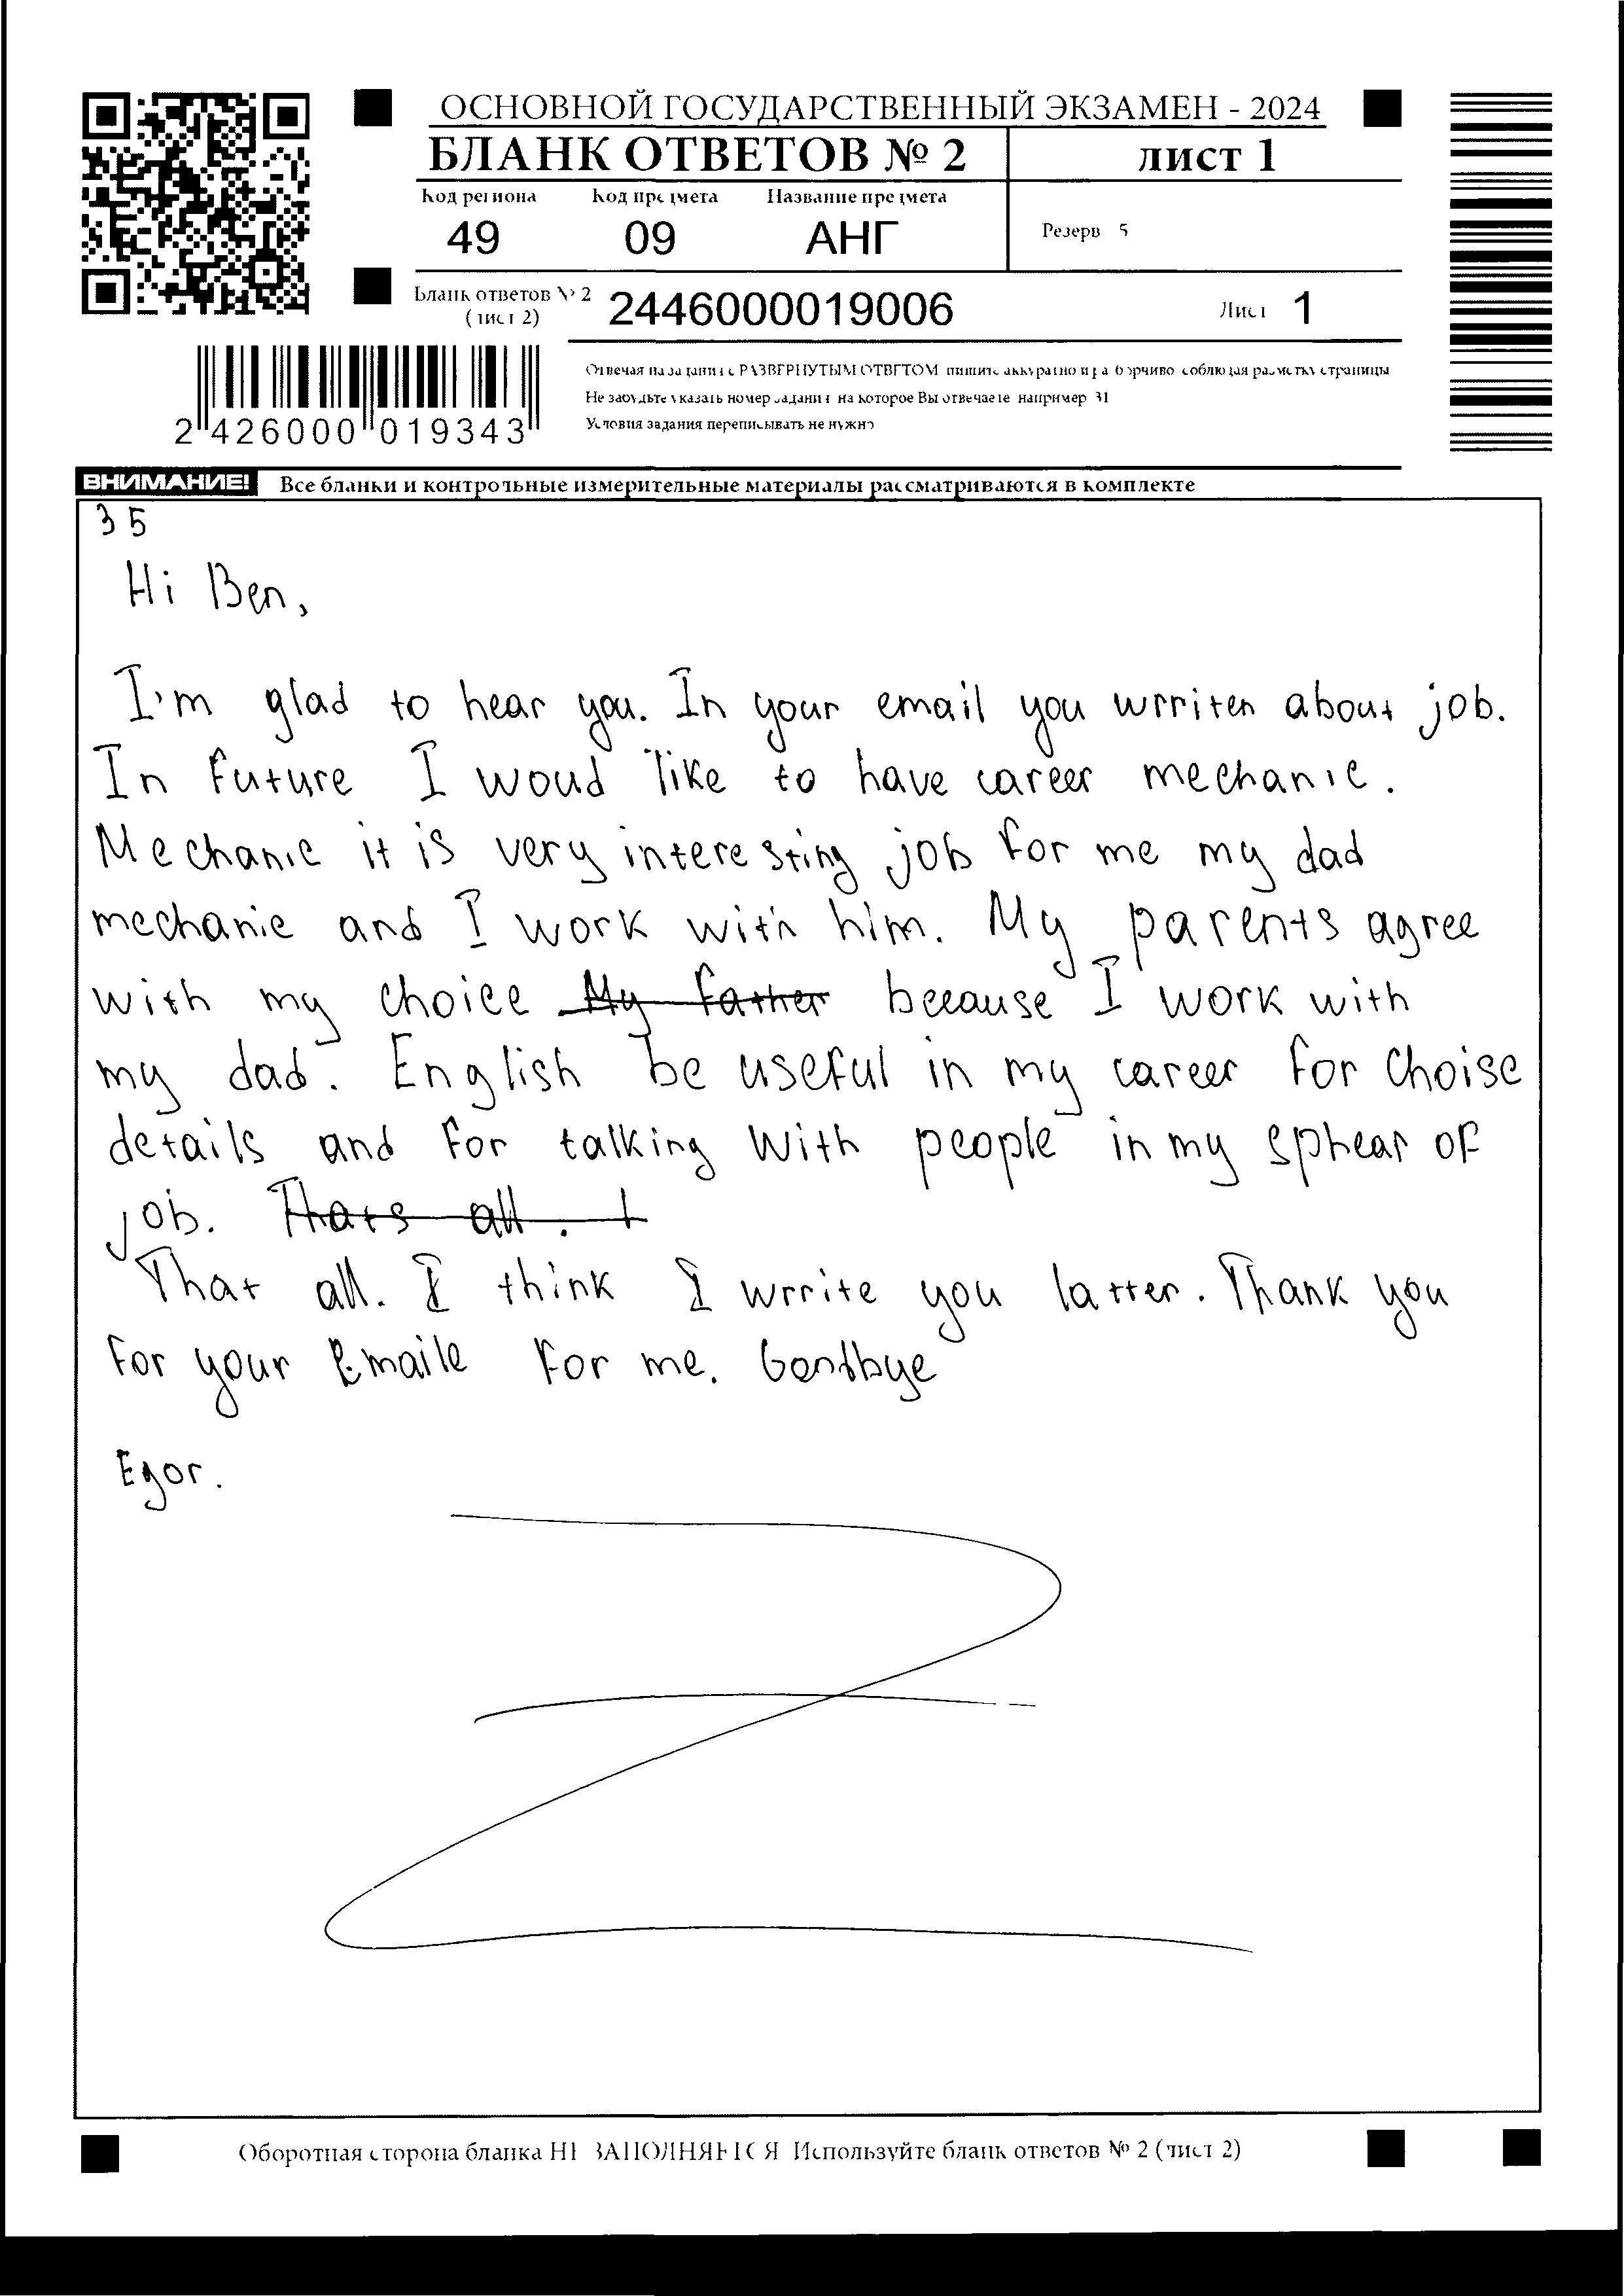 ОСНОВНОЙ ГОСУДАРСТВЕННЫЙ ЭКЗАМЕН - 2024
БЛАНК ОТВЕТОВ № 2 лист 1
Код региона Код предмета Название предмета
49 09 АНГ Резерв 5
Бланк ответов № 2
(лист 2) 2446000019006 Лист 1
Отвечая на задания с РАЗВЕРНУТЫМ ОТВЕТОМ пишите аккуратно и разборчиво соблюдая разметку страницы
Не забудьте указать номер задания на которое Вы отвечаете например 31
Условия задания переписывать не нужно
2 426000 019343
ВНИМАНИЕ! Все бланки и контрольные измерительные материалы рассматриваются в комплекте
35
Hi Ben,
I'm glad to hear you. In your email you wrriten about job.
In future I woud like to have career mechanic.
Mechanic it is very interesting job for me my dad
mechanic and I work with him. My parents agree
with my choice My father because I work with
my dad. English be useful in my career for choise
details and for talking with people in my sphear of
job. Thats all. I
That all. I think I wrrite you latter. Thank you
for your Emaile for me. Goodbye
Egor.
Оборотная сторона бланка НЕ ЗАПОЛНЯЕТСЯ Используйте бланк ответов № 2 (лист 2)